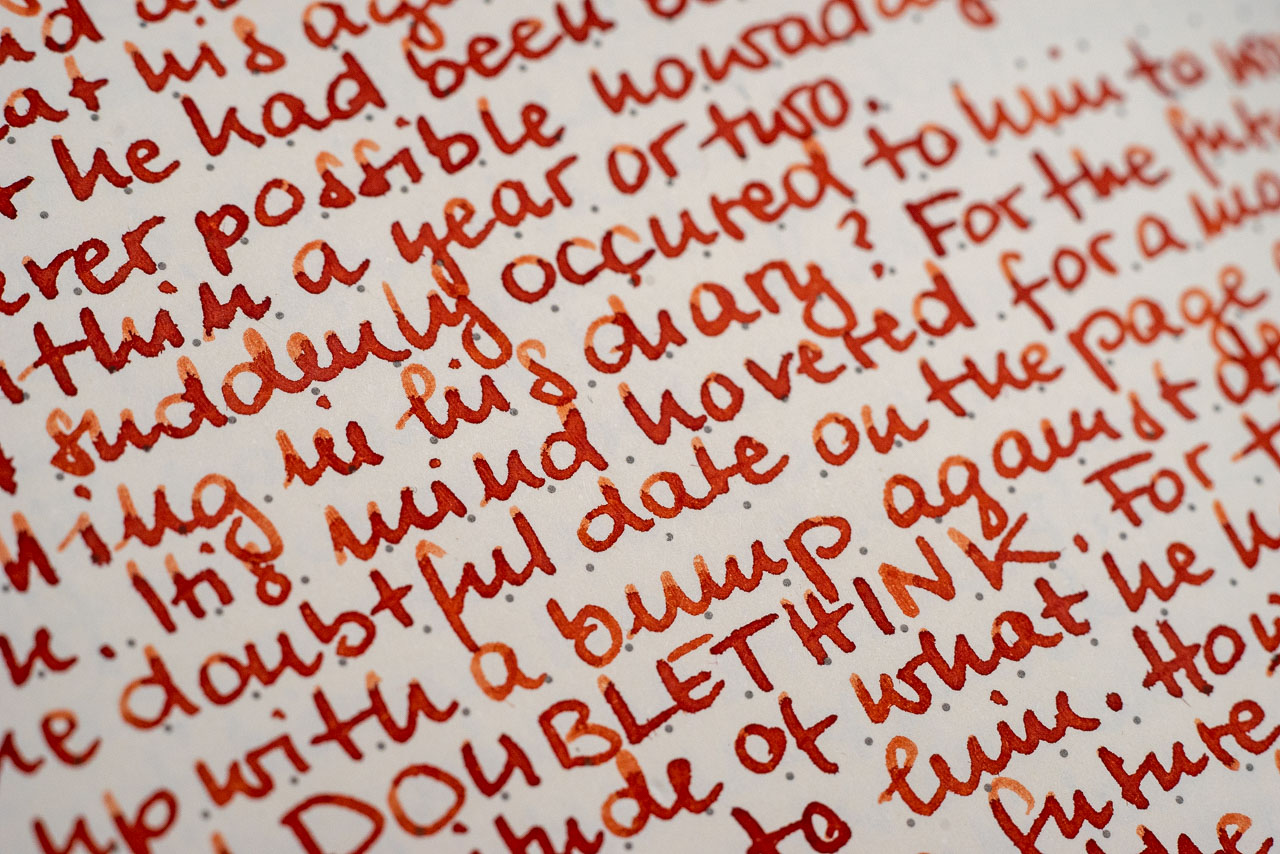 at his
he had been
possible nowaday
a year or two.
suddenly occured to him to
in his diary? For the
His mind hovered for a
doubtful date on the page
up with a bump against
DOUBLETHINK. For
of what he
to him.
future